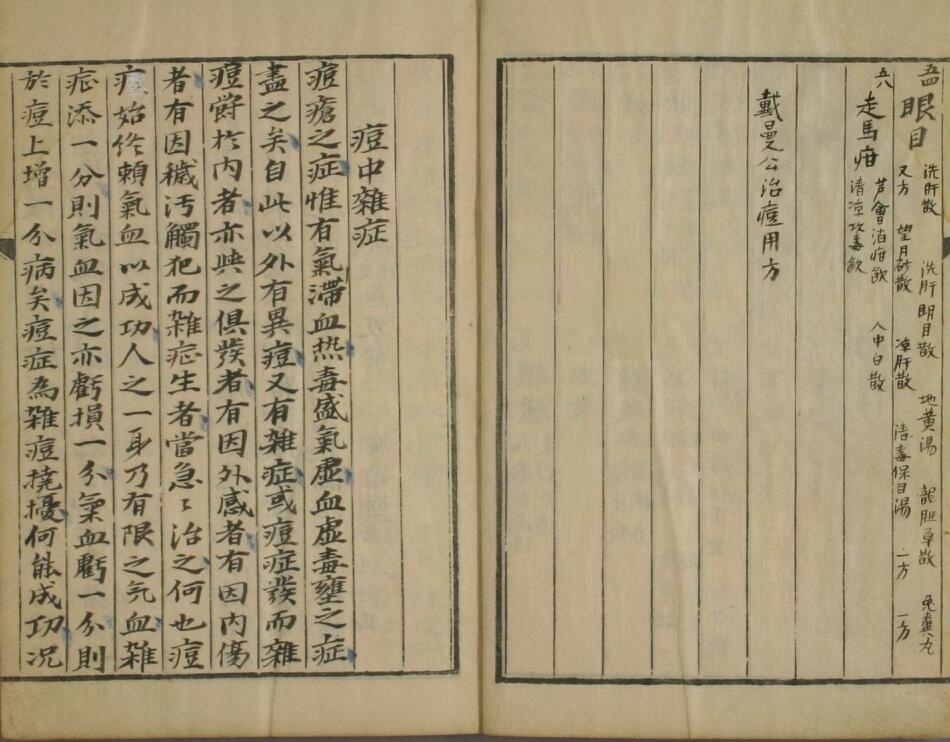 眼目 洗肝散 洗肝明目散 地黄湯 龍胆草散 兎糞丸
又方 望月砂散 凉肝散 清毒保目湯 二方 一方
五八 走馬疳 芦會消疳飲 人中白散
清凉攻毒飲
戴曼公治痘用方
痘中雜症
痘瘡之症惟有氣滯血热毒盛氣虛血虛毒壅之症
盡之矣自此以外有異痘又有雜症或痘症發而雜
痘欝於内者亦與之俱發者有因外感者有因内傷
者有因穢汚觸犯而雜症生者當急〻治之何也痘
症始終頼氣血以成功人之一身乃有限之気血雜
症添一分則氣血因之亦虧損一分氣血虧一分則
於痘上增一分病矣痘症為雜痘撓擾何能成功况